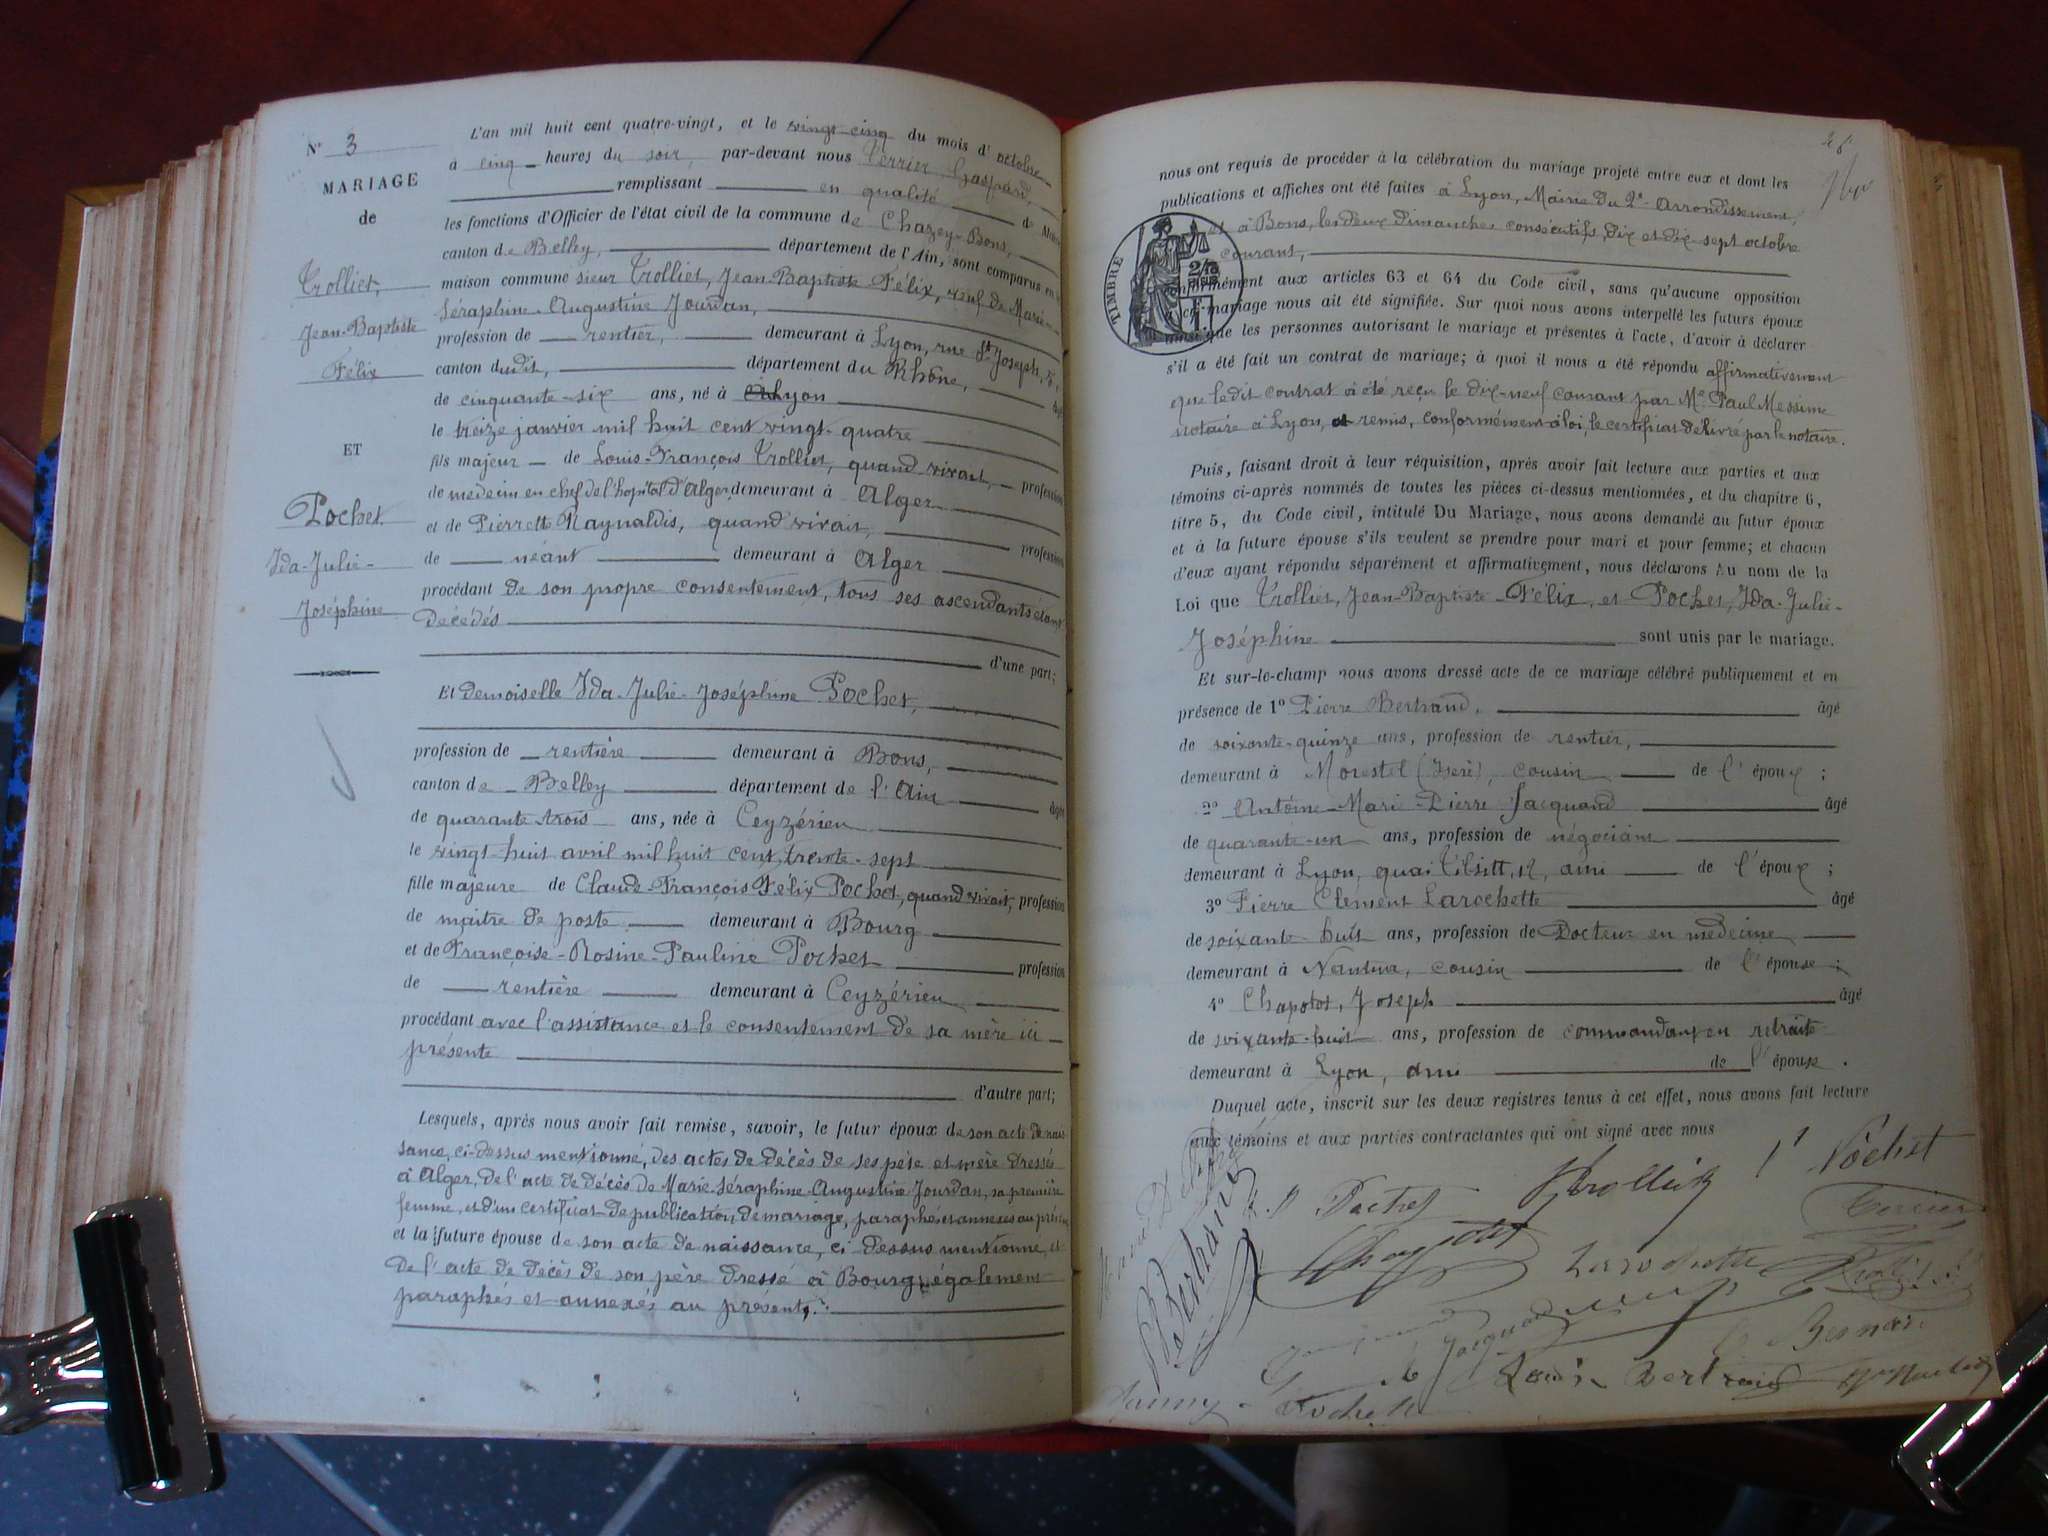 N° 3
MARIAGE
de
Trolliet,
Jean-Baptiste
Félix
ET
Pochet
Ida-Julie-
Joséphine
L'an mil huit cent quatre-vingt, et le vingt-cinq du mois d'octobre
à cinq heures du soir, par-devant nous Terrier Gaspard,
remplissant en qualité de Maire
les fonctions d'Officier de l'état civil de la commune de Chazey-Bons,
canton de Belley, département de l'Ain, sont comparus en la
maison commune sieur Trolliet, Jean-Baptiste Félix, veuf de Marie-
Séraphine-Augustine Jourdan,
profession de rentier, demeurant à Lyon, rue St Joseph, 5,
canton dudit, département du Rhône, âgé
de cinquante-six ans, né à Lyon
le treize janvier mil huit cent vingt-quatre
fils majeur de Louis-François Trolliet, quand vivait, profession
de médecin en chef de l'hopital d'Alger, demeurant à Alger
et de Pierrette Raynaldis, quand vivait, profession
de néant demeurant à Alger
procédant de son propre consentement, tous ses ascendants étant
décédés
d'une part;
Et demoiselle Ida-Julie-Joséphine Pochet,
profession de rentière demeurant à Bons,
canton de Belley département de l'Ain âgée
de quarante-trois ans, née à Ceyzérieu
le vingt-huit avril mil huit cent trente-sept
fille majeure de Claude-François Félix Pochet, quand vivait, profession
de maître de poste demeurant à Bourg
et de Françoise-Rosine-Pauline Pochet profession
de rentière demeurant à Ceyzérieu
procédant avec l'assistance et le consentement de sa mère ici
présente
d'autre part;
Lesquels, après nous avoir fait remise, savoir, le futur époux de son acte de nais
sance, ci-dessus mentionné, des actes de décès de ses père et mère dressés
à Alger, de l'acte de décès de Marie-Séraphine-Augustine Jourdan, sa première
femme, et d'un certificat de publication de mariage, paraphés et annexés au présent
et la future épouse de son acte de naissance, ci-dessus mentionné, et
de l'acte de décès de son père dressé à Bourg, également
paraphés et annexés au présent,
26
nous ont requis de procéder à la célébration du mariage projeté entre eux et dont les
publications et affiches ont été faites à Lyon, Mairie du 2e arrondissement,
et à Bons, les deux dimanches consécutifs, dix et dix-sept octobre
courant,
TIMBRE
conformément aux articles 63 et 64 du Code civil, sans qu'aucune opposition
à ce mariage nous ait été signifiée. Sur quoi nous avons interpellé les futurs époux
ainsi que les personnes autorisant le mariage et présentes à l'acte, d'avoir à déclarer
s'il a été fait un contrat de mariage; à quoi il nous a été répondu affirmativement
que ledit contrat a été reçu le dix-neuf courant par Me Paul Messime
notaire à Lyon, et remis, conformément à loi, le certificat délivré par le notaire.
Puis, faisant droit à leur réquisition, après avoir fait lecture aux parties et aux
témoins ci-après nommés de toutes les pièces ci-dessus mentionnées, et du chapitre 6,
titre 5, du Code civil, intitulé Du Mariage, nous avons demandé au futur époux
et à la future épouse s'ils veulent se prendre pour mari et pour femme; et chacun
d'eux ayant répondu séparément et affirmativement, nous déclarons Au nom de la
Loi que Trolliet, Jean-Baptiste-Félix, et Pochet, Ida-Julie-
Joséphine sont unis par le mariage.
Et sur-le-champ nous avons dressé acte de ce mariage célébré publiquement et en
présence de 1° Pierre Bertrand, âgé
de soixante-quinze ans, profession de rentier,
demeurant à Morestel (Isère), cousin de l'époux;
2° Antoine-Marie-Pierre Jacquand âgé
de quarante-un ans, profession de négociant
demeurant à Lyon, quai Tilsitt, 12, ami de l'époux;
3° Pierre Clément Larochette âgé
de soixante-huit ans, profession de Docteur en médecine
demeurant à Nantua, cousin de l'épouse;
4° Chapotot, Joseph âgé
de soixante-huit ans, profession de commandant en retraite
demeurant à Lyon, ami de l'épouse.
Duquel acte, inscrit sur les deux registres tenus à cet effet, nous avons fait lecture
aux témoins et aux parties contractantes qui ont signé avec nous
Pochet Trolliet Pochet
Bertrand Chapotot Larochette Terrier
Jacquand Bernard
Fanny Pochet Louis Bertrand